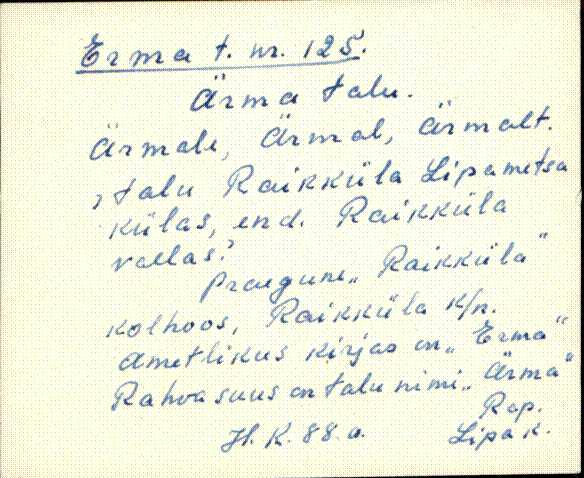 Erma t. nr. 125.
Ärma talu.
Ärmale, Ärmal, Ärmalt.
, talu Raikküla Lipametsa
külas, end. Raikküla
vallas?
Praegune „Raikküla"
kolhoos, Raikküla k/n.
Ametlikus kirjas on „Erma"
Rahva suus on talu nimi „Ärma"
Rap.
H. K. 88. a. Lipa k.